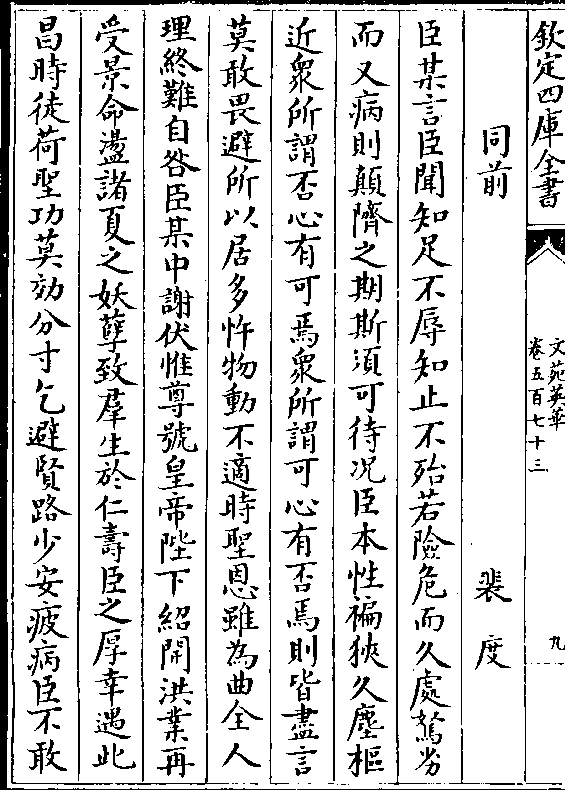 欽定四庫全書
文苑英華
卷五百七十三
九
同前
裴度
臣某言臣聞知足不辱知止不殆若險危而久處駑劣
而又病則顛隮之期斯須可待况臣本性褊狹久塵樞
近衆所謂否心有可焉衆所謂可心有否焉則皆盡言
莫敢畏避所以居多忤物動不適時聖恩雖為曲全人
理終難自咎臣某中謝伏惟尊號皇帝陛下紹開洪業再
受景命盪諸夏之妖孽致羣生於仁壽臣之厚幸遇此
昌時徒荷聖功莫効分寸乞避賢路少安疲病臣不敢